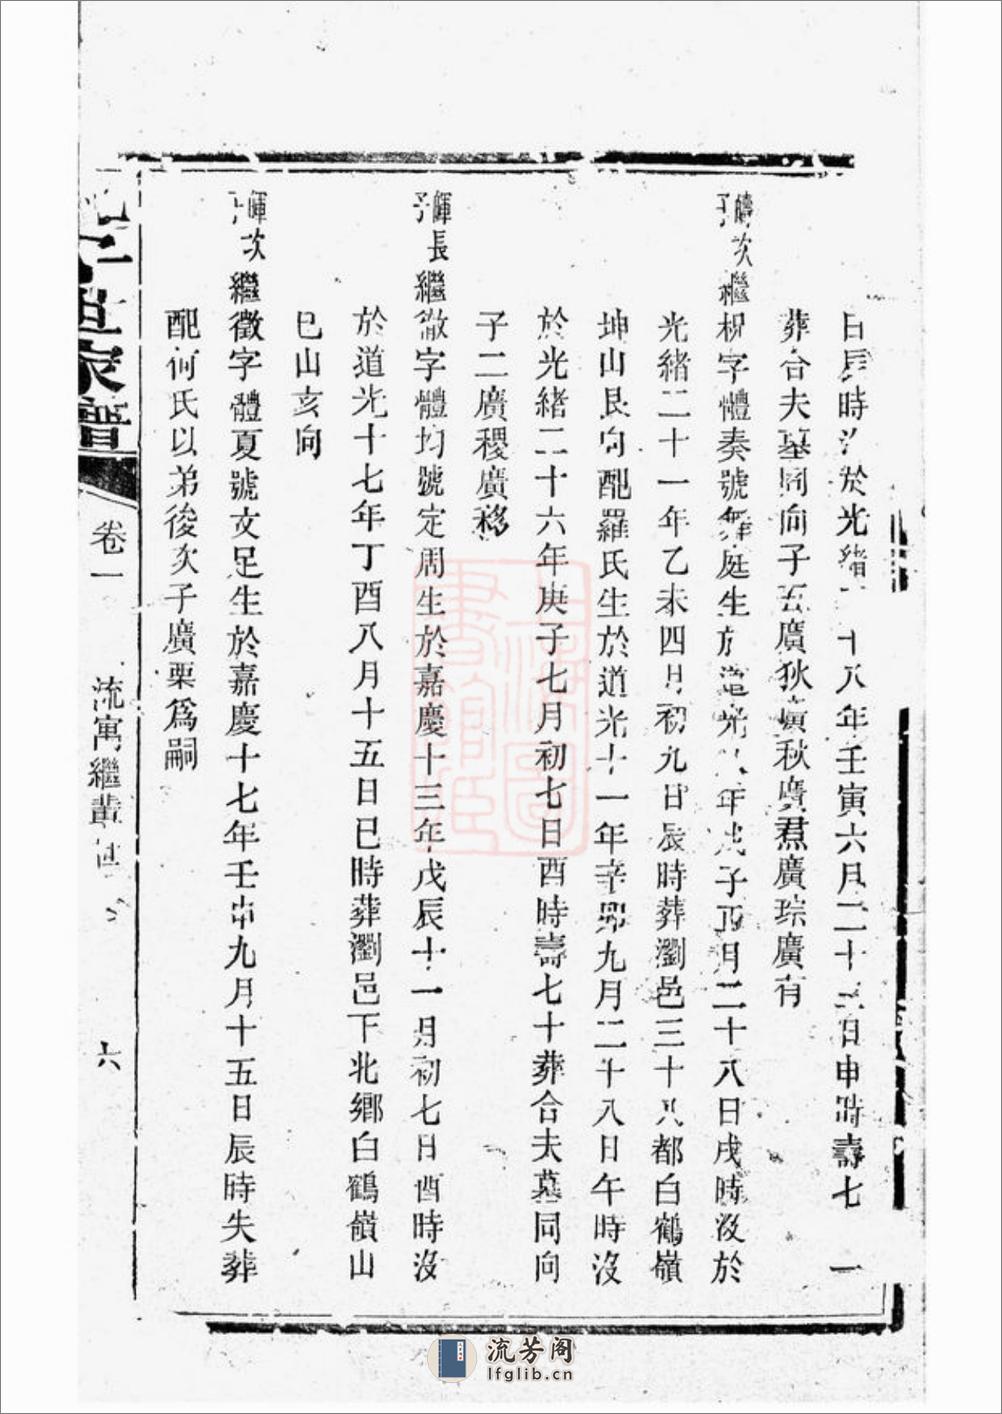 日辰時沒於光緒二十八年壬寅六月二十五日申時壽七一
葬合夫墓同向子五廣狄廣秋廣焄廣琮廣有
子次繼柷字體奏號舞庭生於道光八年戊子正月二十八日戌時沒於
光緒二十一年乙未四月初九日辰時葬瀏邑三十八都白鶴嶺
坤山艮向配羅氏生於道光十一年辛卯九月二十八日午時沒
於光緒二十六年庚子七月初七日酉時壽七十葬合夫墓同向
子二廣稷廣移
暉長子繼徹字體均號定周生於嘉慶十三年戊辰十一月初七日酉時沒
於道光十七年丁酉八月十五日巳時葬瀏邑下北鄉白鶴嶺山
巳山亥向
暉次子繼徵字體夏號文足生於嘉慶十七年壬申九月十五日辰時失葬
配何氏以弟後次子廣栗爲嗣
世家譜
卷一
流寓繼輩世
六
流芳阁
lfglib.cn